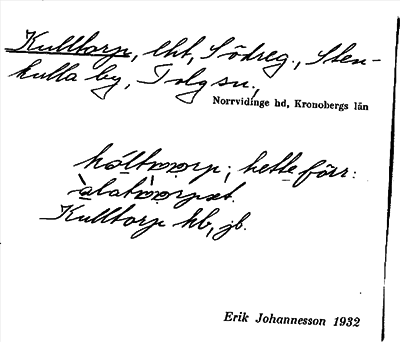 Kulltorp, lht, Södreg., Sten-
kulla by, Tolg sn.,
Norrvidinge hd, Kronobergs län
hette förr:
Kulltorp hb, jb.
Erik Johannesson 1932